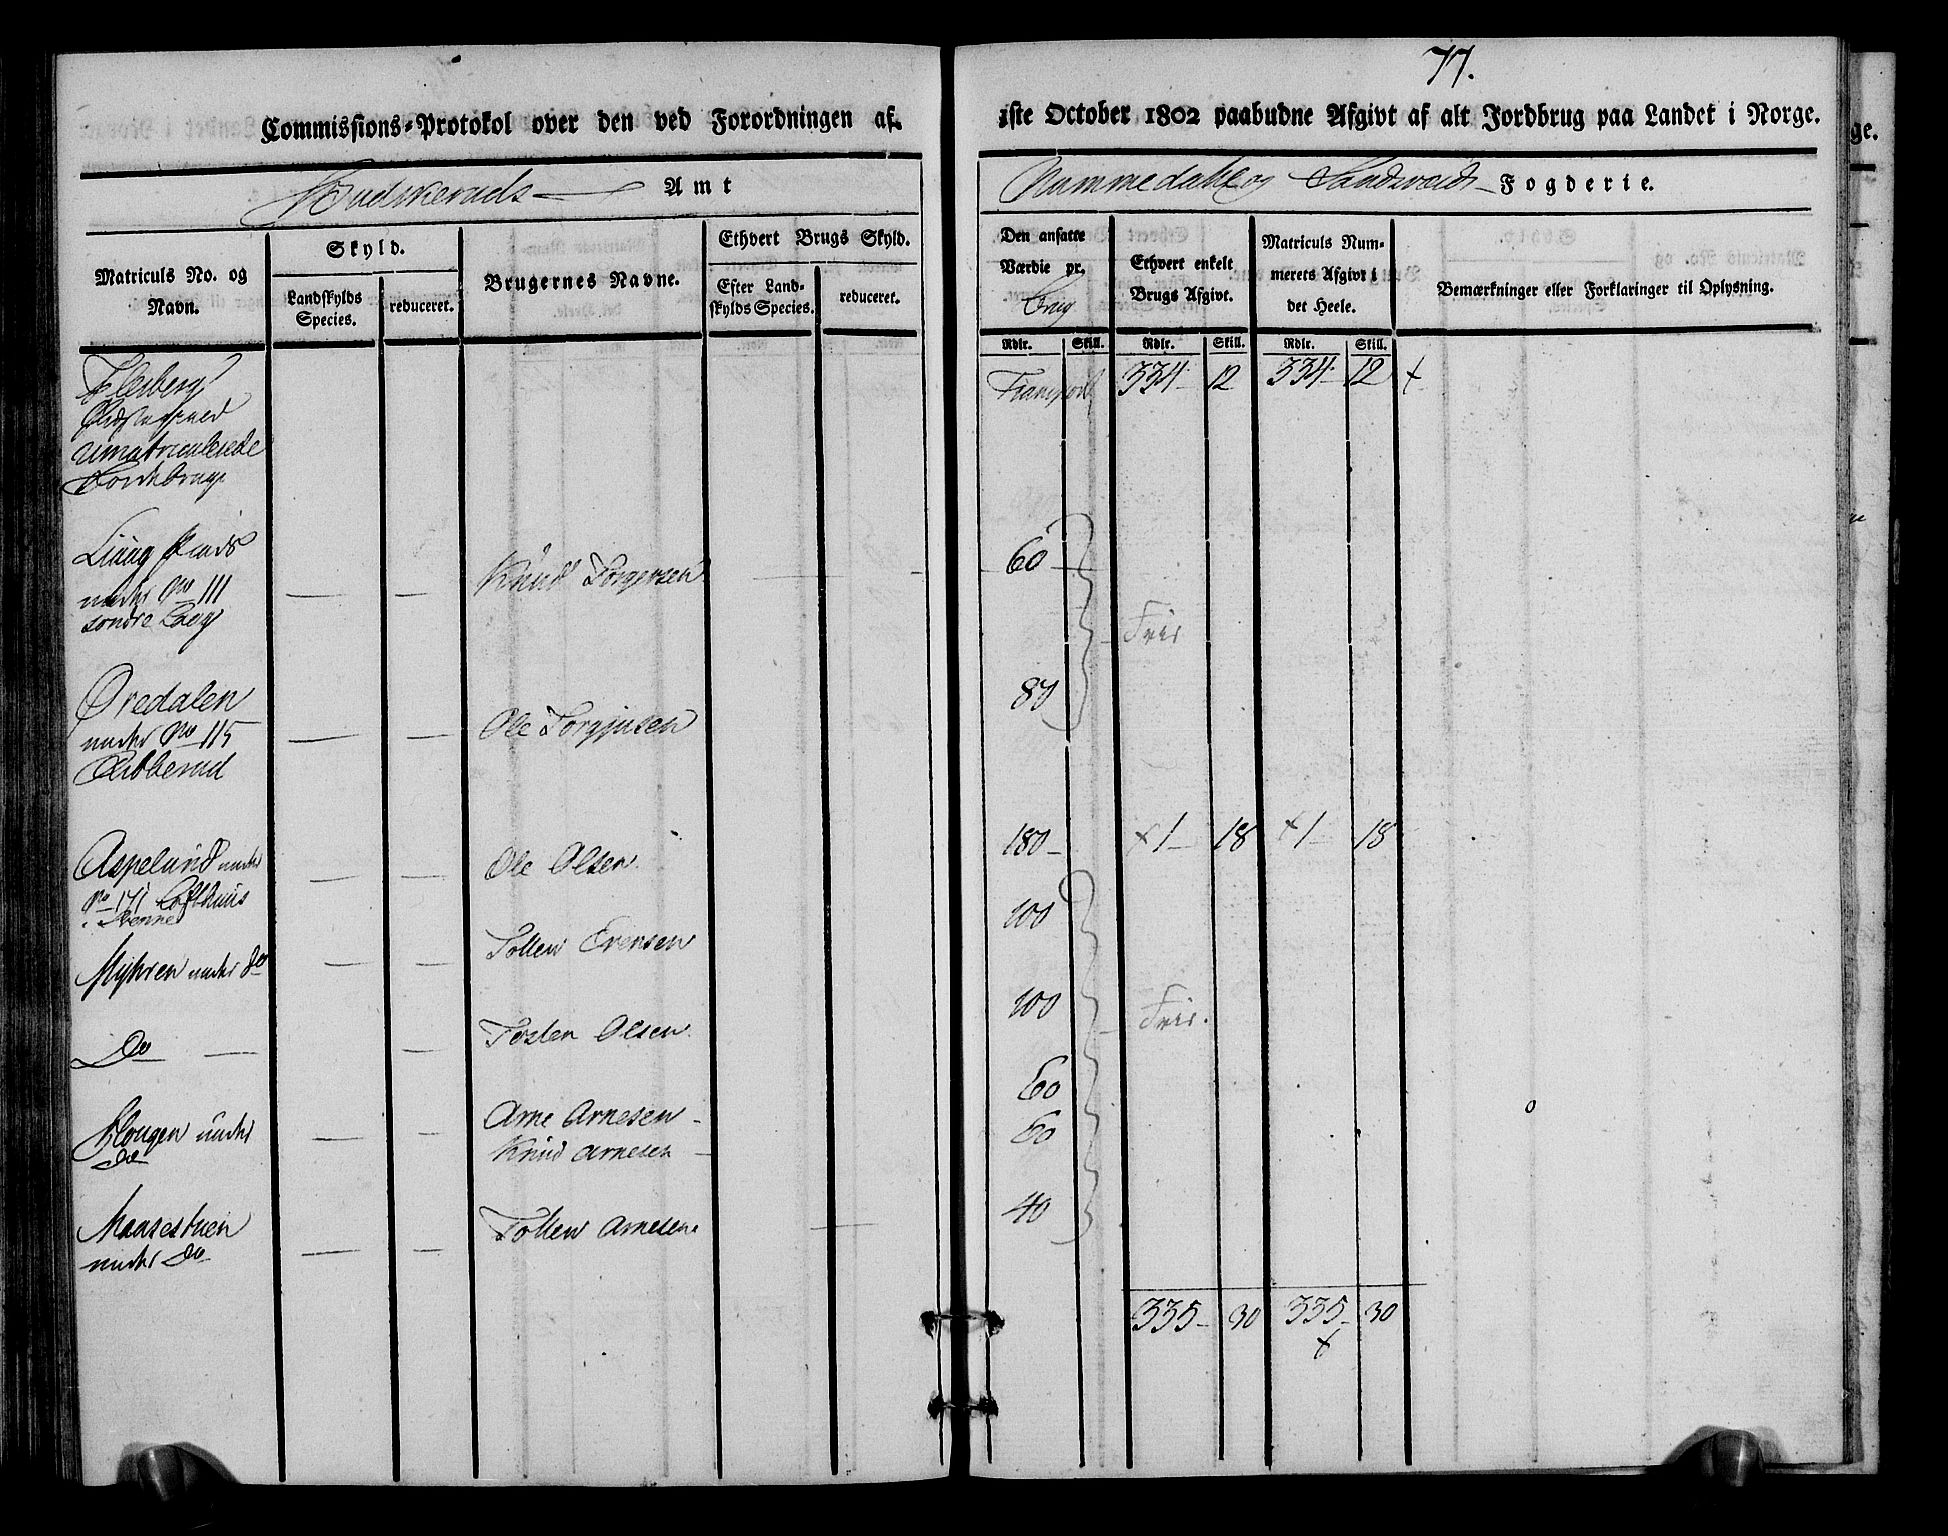 77.
Commissions-Protokol over den ved Forordningen af
1ste October 1802 paabudne Afgivt af alt Jordbrug paa Landet i Norge.
Budskeruds Amt
Nummedahl og Sandsværds Fogderie.
Matriculs No. og Navn.
Skyld.
Landskylds Species.
reduceret.
Brugernes Navne.
Ethvert Brugs Skyld.
Efter Landskylds Species.
reduceret.
Den ansatte Værdie pr. Brug
Ethvert enkelt Brugs Afgivt.
Matriculs Nummerets Afgivt i det Heele.
Bemærkninger eller Forklaringer til Oplysning.
Rdlr. Skill. Rdlr. Skill. Rdlr. Skill.
Flesberg
Præstegield
umatriculerede
Jordebruge
Transport 334 12 334 12 +
Liaug Plads
under No 111
søndre Laeg
Knud Torgersen 60
Frie
Øvedalen
under No 115
Ribberud
Ole Torgjusen 80
Aspelund under
No 171 Lofthuus
i Svenne
Ole Olsen 180 + 1 18 + 1 18
Myhren under do
Tollew Evensen 100
Do
Tosten Olsen 100
Frie.
Hougen under
do
Arne Arnesen 60
Knud Arnesen 60
Maasestuen
under do
Tollew Arnesen 40
335 30 335 30
+